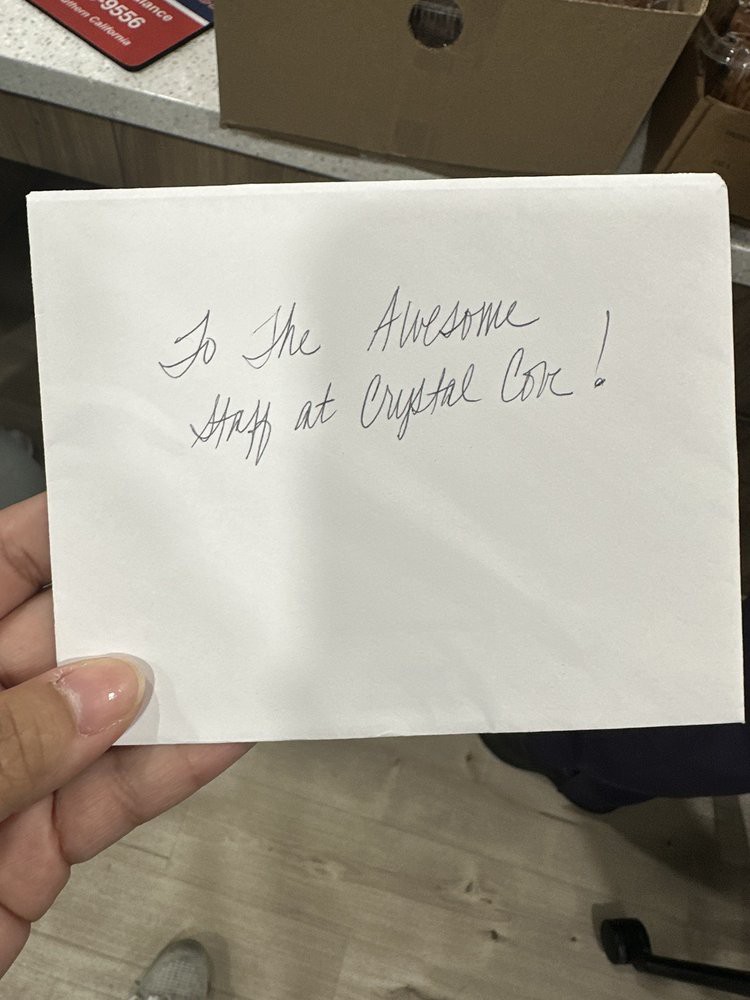 -9556
Southern California
To The Awesome
Staff at Crystal Cove!